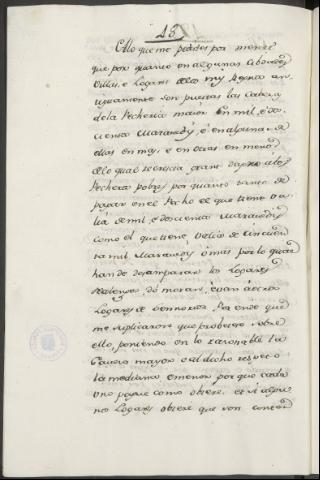 13
A lo que me pedistes por merced
que por quanto en algunas Cibdades
Villas, e Logares de los mis Regnos an-
tiguamente son puestas las cabezas
de la Pecheria maior En mil, e do-
cientos Maravedis, e en algunas de
ellas en mas, e en otras en menos
de lo qual recrescia grant dapno a los
Pecheros pobres por quanto tanto de
pagar en el Pecho el que tiene va-
lia de mil, e docientos Maravedis
como el que tiene valia de cincuen-
ta mil Maravedis o mas por lo qual
han de desamparar los Logares
Realengos, do moran, e van a los
Logares de Sennorios. Por ende que
me suplicavades que proveiese sobre
ello, poniendo en lo razonable la
Quantia mayor e al dicho respecto
la mediana e menor por que cada
uno pague como obiere. et si algu-
nos Logares obiere que son